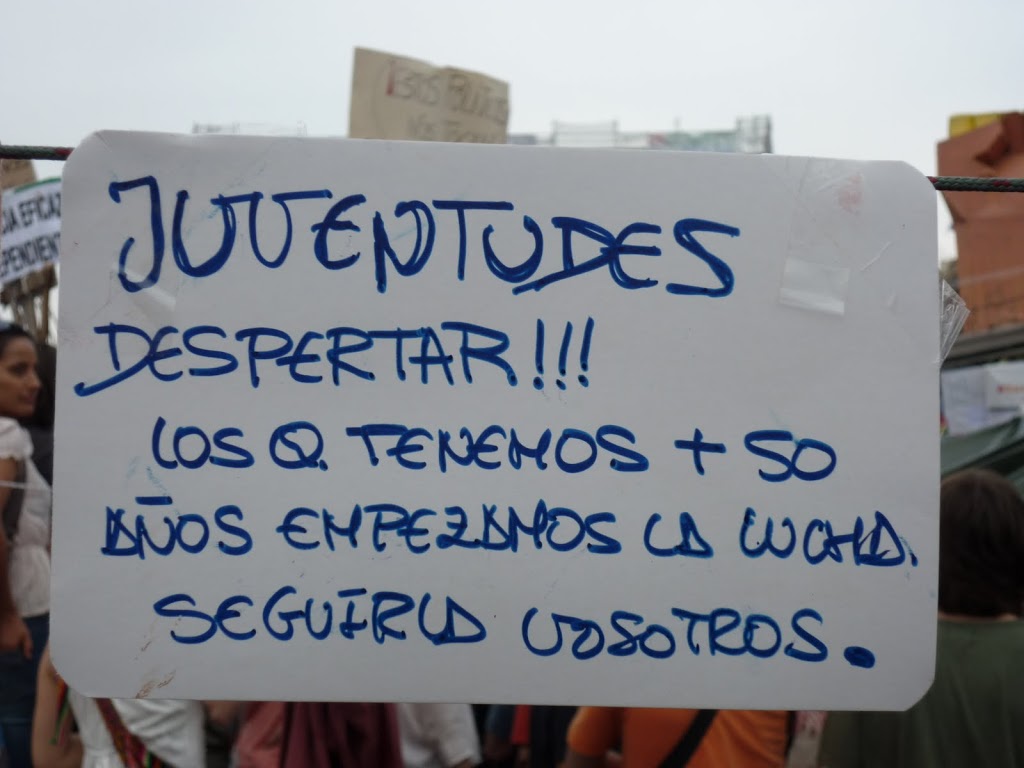 JUVENTUDES
DESPERTAR!!!
LOS Q. TENEMOS + 50
AÑOS EMPEZAMOS LA LUCHA.
SEGUIRLA VOSOTROS.